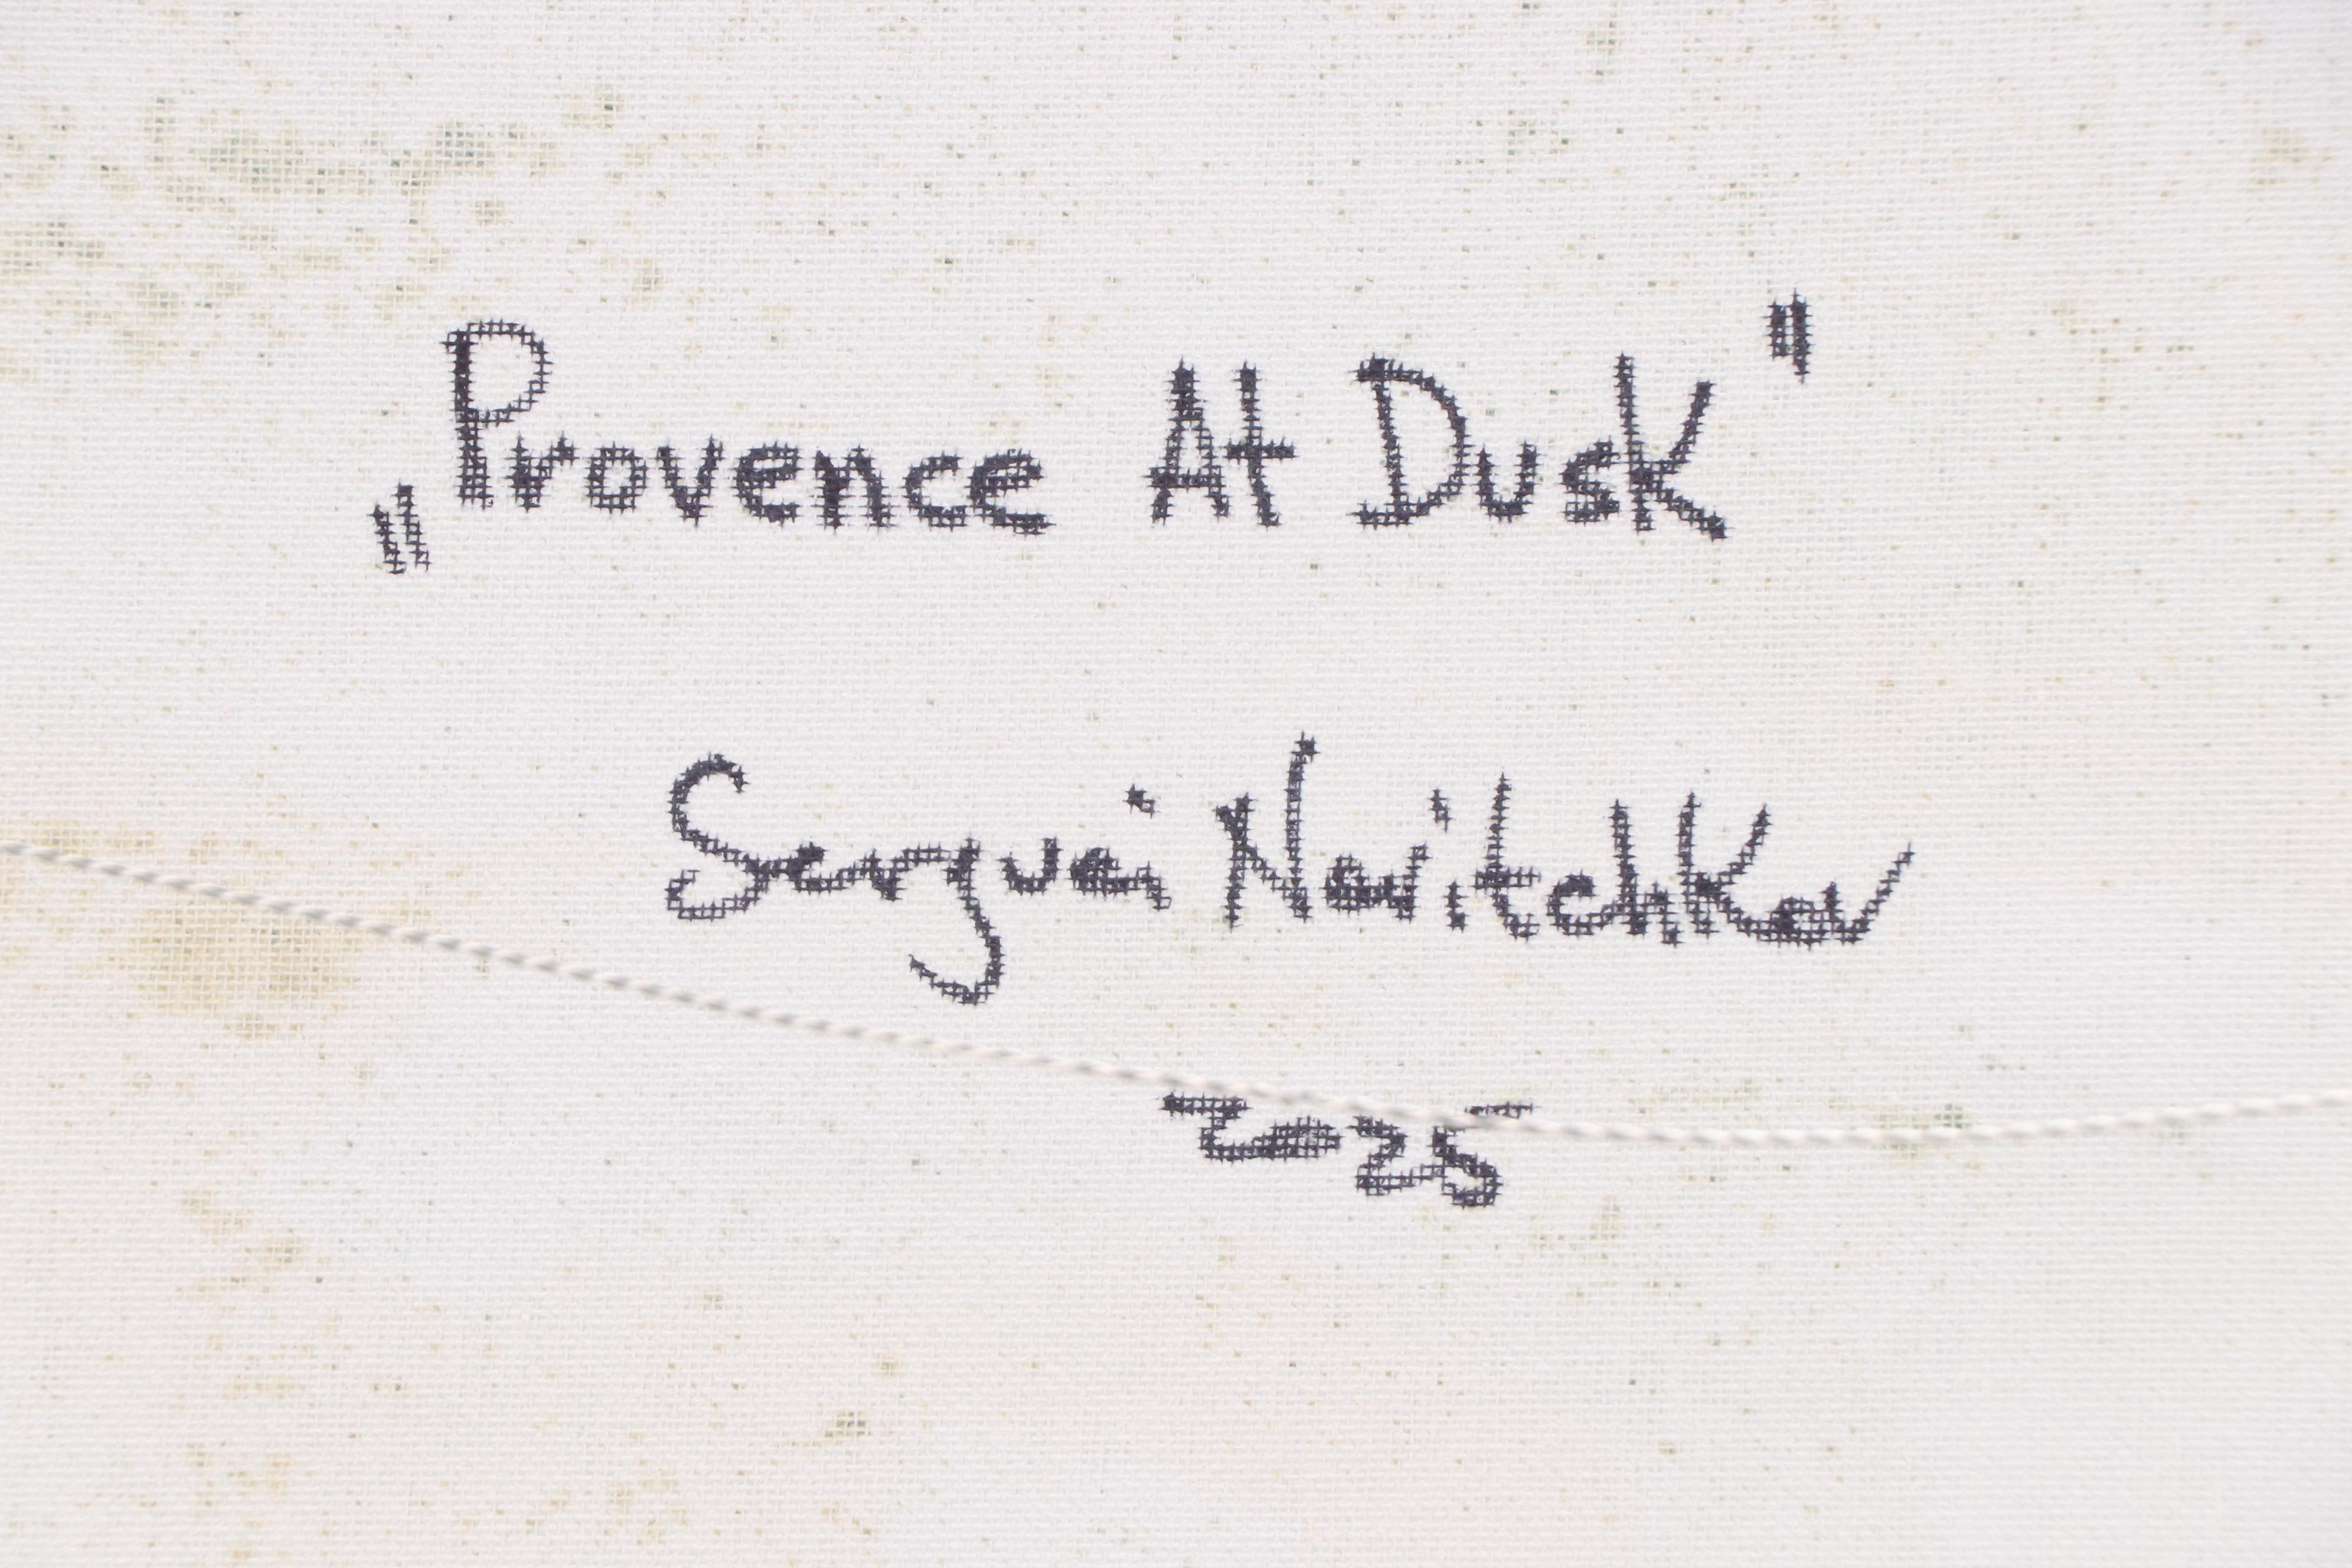 „Provence At Dusk"
Serguei Novitchkov
2025